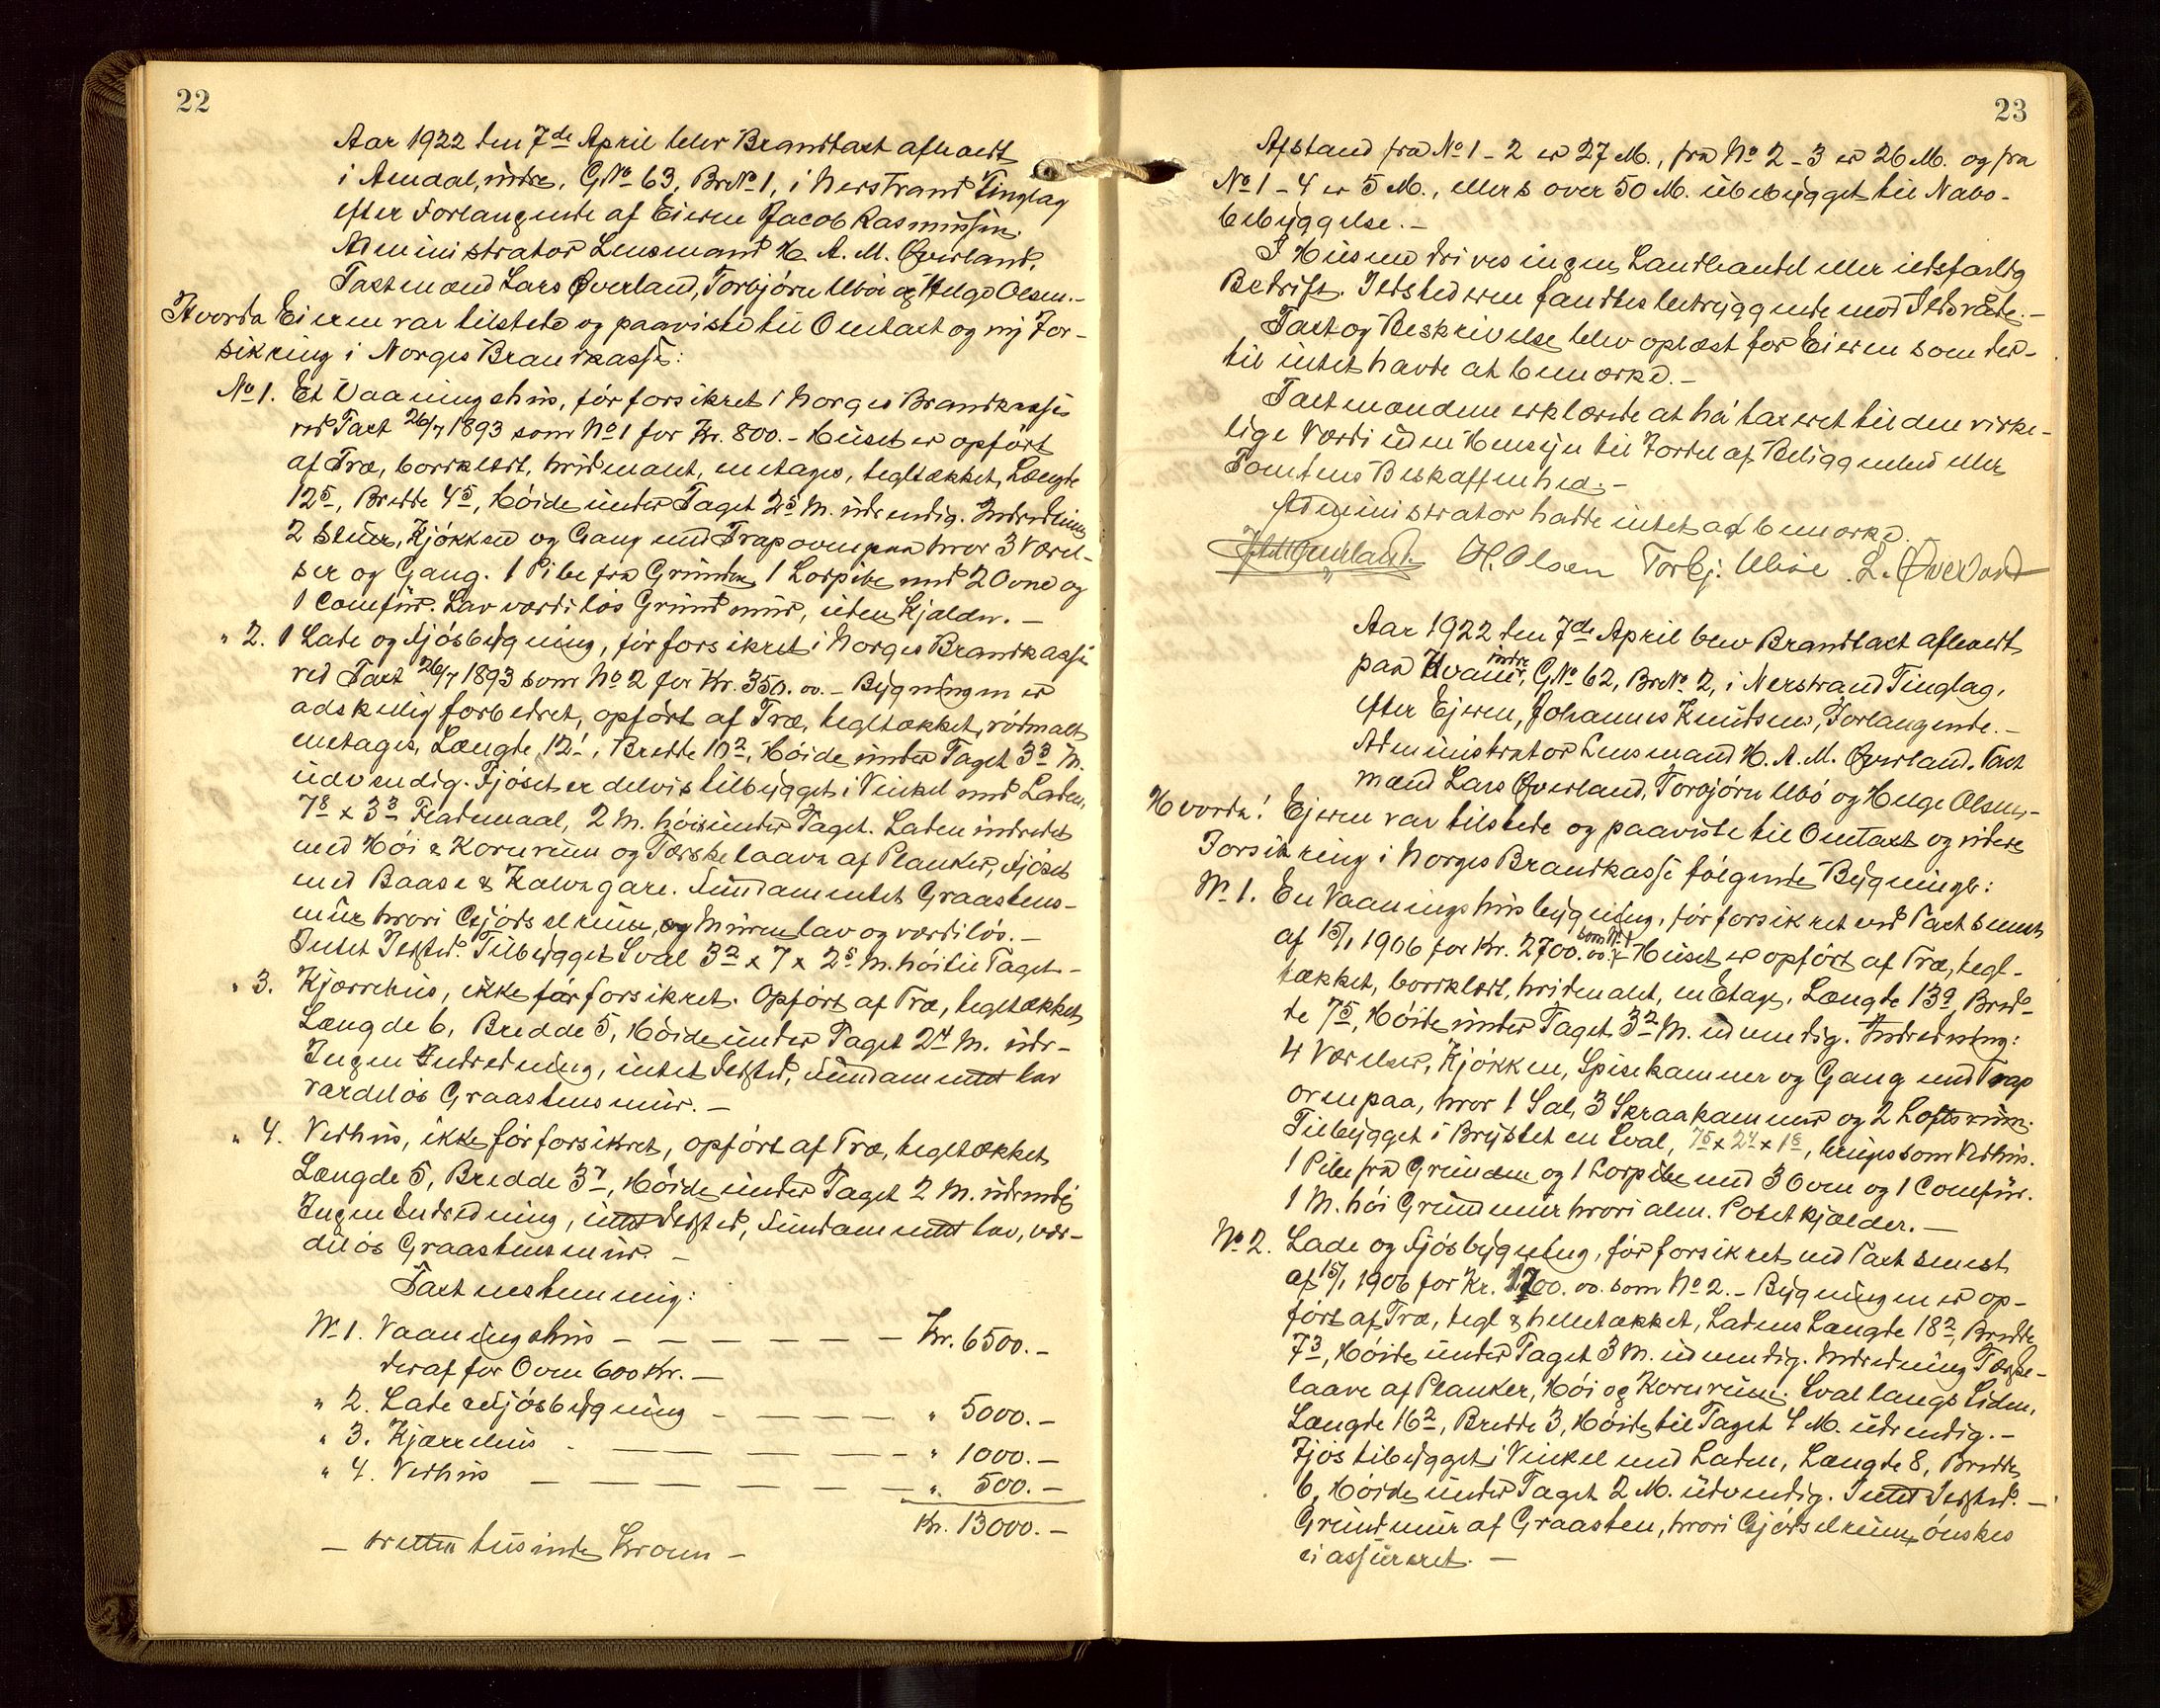 22
Aar 1922 den 7de April blev Brandtaxt afholdt
i Amdal, indre, GNo 63, BrNo 1, i Nerstrand Tinglag
efter Forlangende af Eieren Jacob Rasmussen.
Administrator Lensmand H. A. M. Øverland,
Taxtmænd Lars Øverland, Torbjörn Ubö og Helge Olsen.-
Hvorda Eieren var tilstede og paaviste til Omtaxt og ny For-
sikring i Norges Brandkasse:
No 1. Et Vaaningshus, för forsikret i Norges Brandkasse
ved Taxt 26/7 1893 som No 1 for Kr. 800.- Huset er opfört
af Træ, bordklædt, hvidmalt, enetages, tegltækket, Længde
12 5, Bredde 4 5, Höide under Taget 2 5 M. udvendig. Indredning
2 Stuer, Kjökken og Gang med Trap ovenpaa hvor 3 Værel-
ser og Gang. 1 Pibe fra Grunden, 1 Lorpibe med 2 Ovne og
1 Comfür. Lav værdilös Grundmur, uden Kjelder. -
" 2. 1 Lade og Fjösbygning, för forsikret i Norges Brandkasse
ved Taxt 26/7 1893 som No 2 for Kr. 350.00.- Bygningen er
adskillig forbedret, opfört af Træ, tegltækket, rödmalt
enetages, Længde 12 1, Bredde 10 2, Höide under Taget 3 3 M.
udvendig. Fjöset er delvis tilbygget i Vinkel med Laden,
7 8 x 3 3 Flademaal, 2 M. höi under Taget. Laden indredet
med Höi & Kornrum og Tærskelaave af Planker, Fjöset
med Baase & Kalvegare. Fundamentet Graastens-
mur hvori Gjödselrum, og Muren lav og værdilös.-
Intet Ildsted. Tilbygget Sval 3 2 x 7 x 2 5 M. höi til Taget.-
" 3. Kjærrehus, ikke för forsikret. Opfört af Træ, tegltækket
Længde 6, Bredde 5, Höide under Taget 2 4 M. udv-
Ingen Indredning, intet Ildsted, Fundamentet lav
værdilös Graastensmur. -
" 4. Vedhus, ikke för forsikret, opfört af Træ, tegltækket
Længde 5, Bredde 3 7, Höide under Taget 2 M. udvendig
Ingen Indredning, intet Ildsted, Fundamentet lav, vær-
dilös Graastensmur. -
Taxtbestemming:
No 1. Vaaningshus - - - - - - Kr. 6500.-
deraf for Ovne 600 Kr. -
" 2. Lade & Fjösbygning - - - - " 5000.-
" 3. Kjærrehus - - - - - " 1000.-
" 4. Vedhus - - - - - - " 500.-
Kr. 13000.-
- tretten tusinde Kroner -
23
Afstand fra No 1 - 2 er 27 M., fra No 2 - 3 er 26 M. og fra
No 1 - 4 er 5 M., ellers over 50 M. ubebygget til Nabo-
bebyggelse. -
I Husene drives ingen Landhandel eller ildsfarlig
Bedrift. Ildstederne fandtes betryggende mod Ildsvåde.-
Taxt og Beskrivelse blev oplæst for Eieren som der-
til intet havde at bemærke. -
Taxtmændene erklærede at ha taxeret til den virke-
lige Værdi uden Hensyn til Fordel af Beliggenhed eller
Tomtens Beskaffenhed. -
Administrator hadde intet at bemærke.
H.A.M. Øverland. H. Olsen Torbj. Uböe. L. Øverland
Aar 1922 den 7de April blev Brandtaxt afholdt
paa Hvam, indre, GNo 62, BrNo 2, i Nerstrand Tinglag,
efter Ejeren, Johannes Knudsens, Forlangende. -
Administrator Lensmand H. A. M. Øverland. Taxt
mænd Lars Øverland, Torbjörn Ubö og Helge Olsen,-
Hvorda! Ejeren var tilstede og paaviste til Omtaxt og videre
Forsikring i Norges Brandkasse fölgende Bygninger:
No 1. En Vaaningshusbygning, för forsikret ved Taxt senest
af 15/1 1906 for Kr. 2700.00. som No 1 Huset er opfört af Træ, tegl-
tækket, bordklædt, hvidmalt, en Etage, Længde 13 9, Bred-
de 7 5, Höide under Taget 3 2 M. udvendig. Indredning:
4 Værelser, Kjökken, Spisekammer og Gang med Trap
ovenpaa, hvor 1 Sal, 3 Skraakammer og 2 Loftsrum.
Tilbygget i Brystet en Sval, 7 5 x 2 4 x 1 8, bruges som Vedhus.
1 Pibe fra Grunden og 1 Lorpibe med 3 Ovne og 1 Comfür.
1 M. höi Grundmur hvori alm. Potetkjælder. -
No 2. Lade og Fjösbygning, för forsikret ved Taxt senest
af 15/1 1906 for Kr. 1700.00. som No 2. - Bygningen er op-
fört af Træ, tegl & helletækket, Ladens Længde 18 2, Bredde
7 3, Höide under Taget 3 M. udvendig. Indredning Tærske-
laave af Planker, Höi og Kornrum. Sval langs Siden,
Længde 16 2, Bredde 3, Höide til Taget 4 M. udvendig. -
Fjös tilbygget i Vinkel med Laden, Længde 8, Bredde
6, Höide under Taget 2 M. udvendig. Intet Ildsted. -
Grundmur af Graasten, hvori Gjödselrum, önskes
ei assureret. -